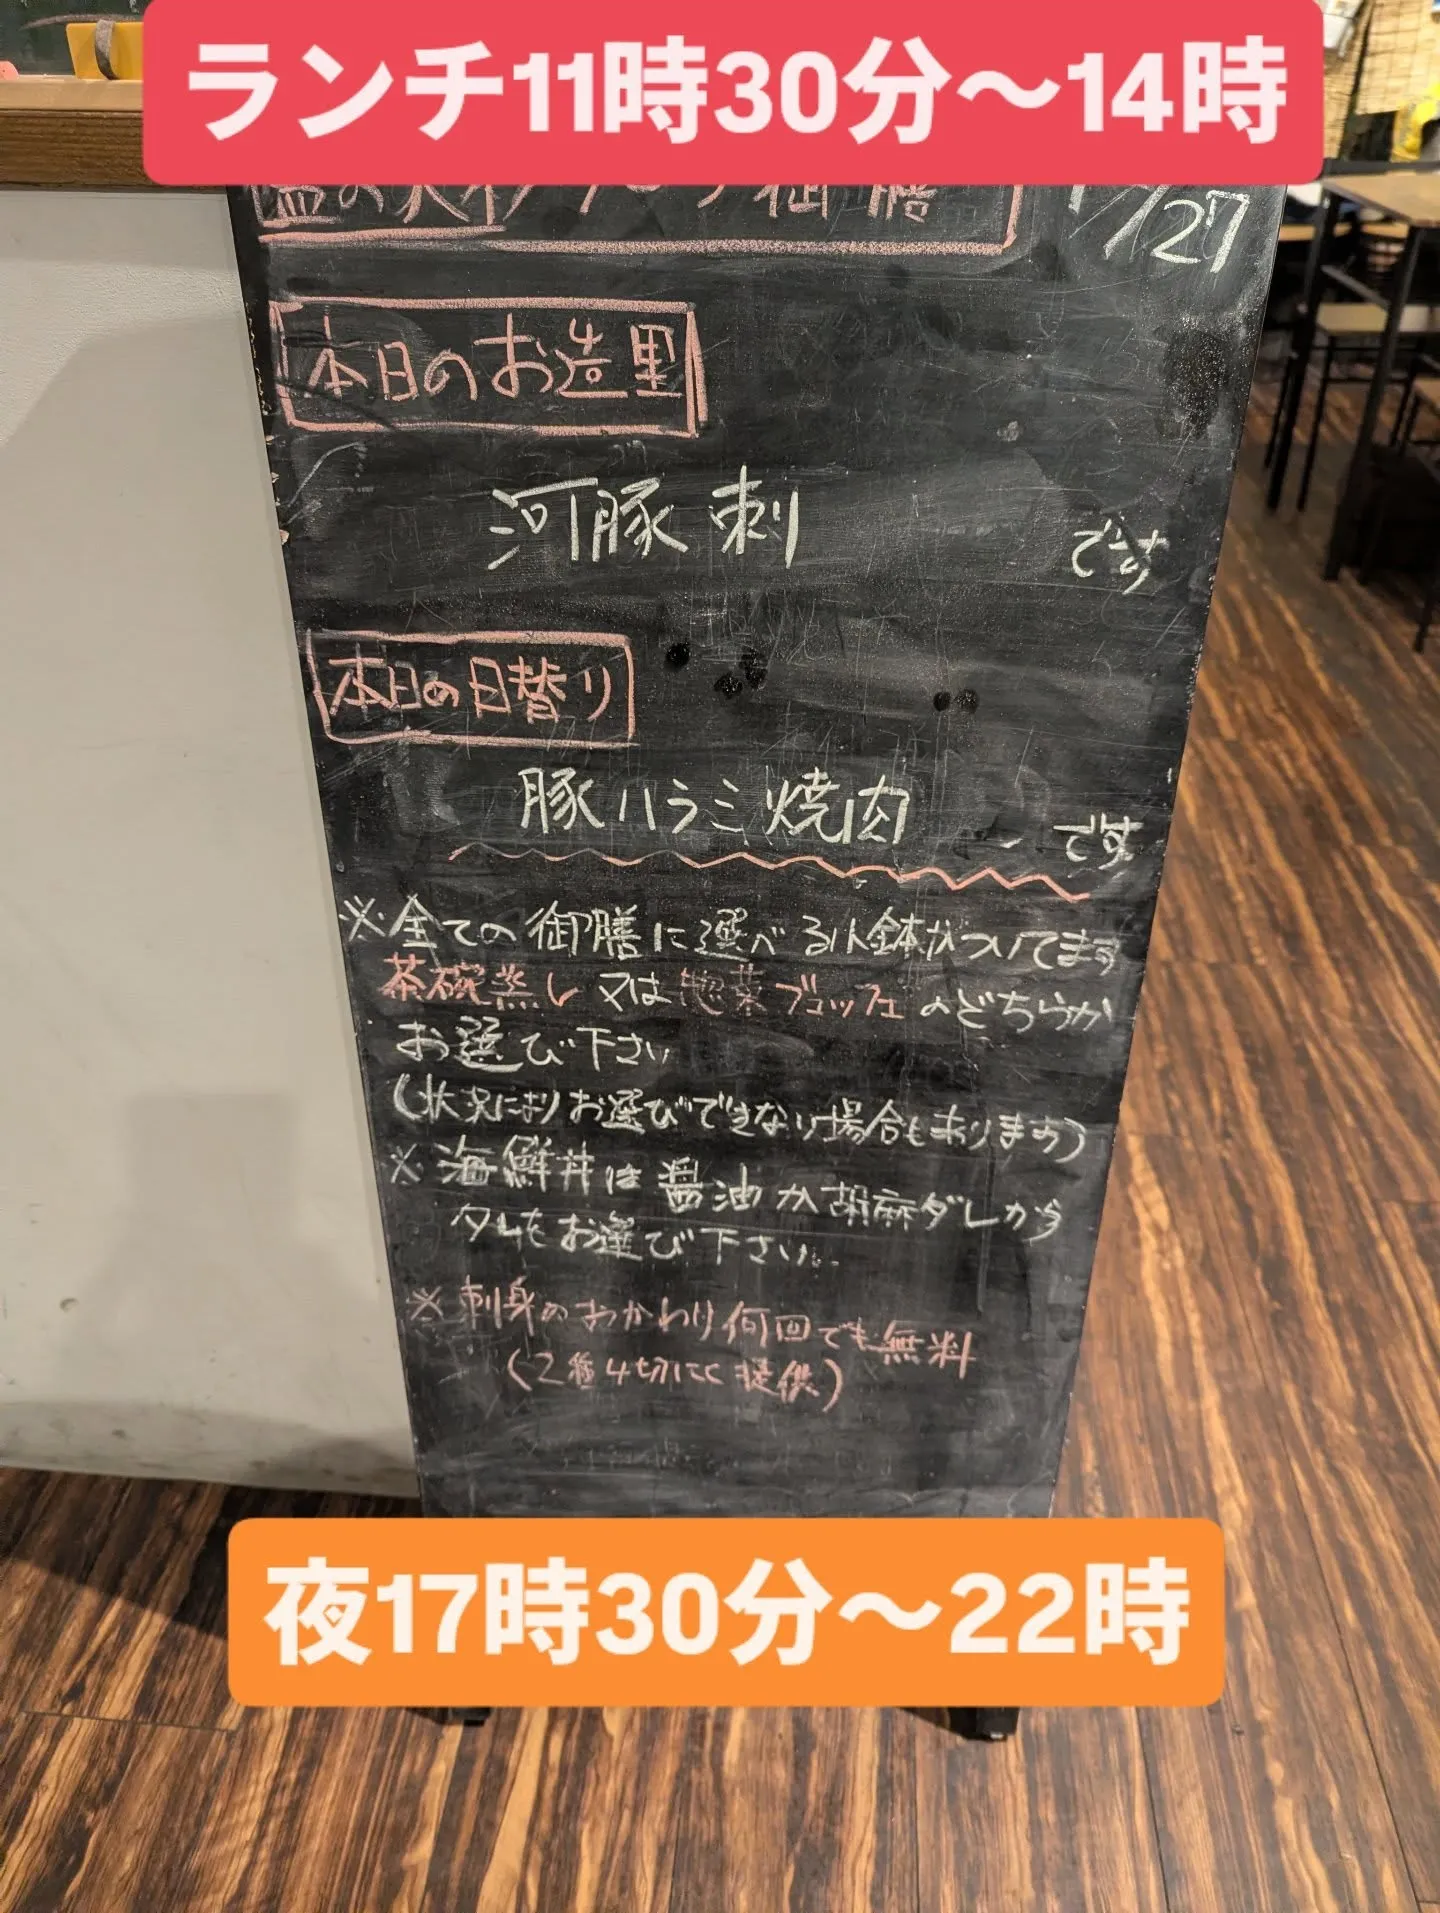 ランチ11時30分〜14時
御膳
/27
本日のお造里
河豚刺 です
本日の日替り
豚ハラミ焼肉 です
※全ての御膳に選べる小鉢がついてます
茶碗蒸し又は惣菜ブュッフェのどちらか
お選び下さい
(状況によりお選びできない場合もあります)
※海鮮丼は醤油か胡麻ダレから
タレをお選び下さい
※刺身のおかわり何回でも無料
(2種4切にて提供)
夜17時30分〜22時